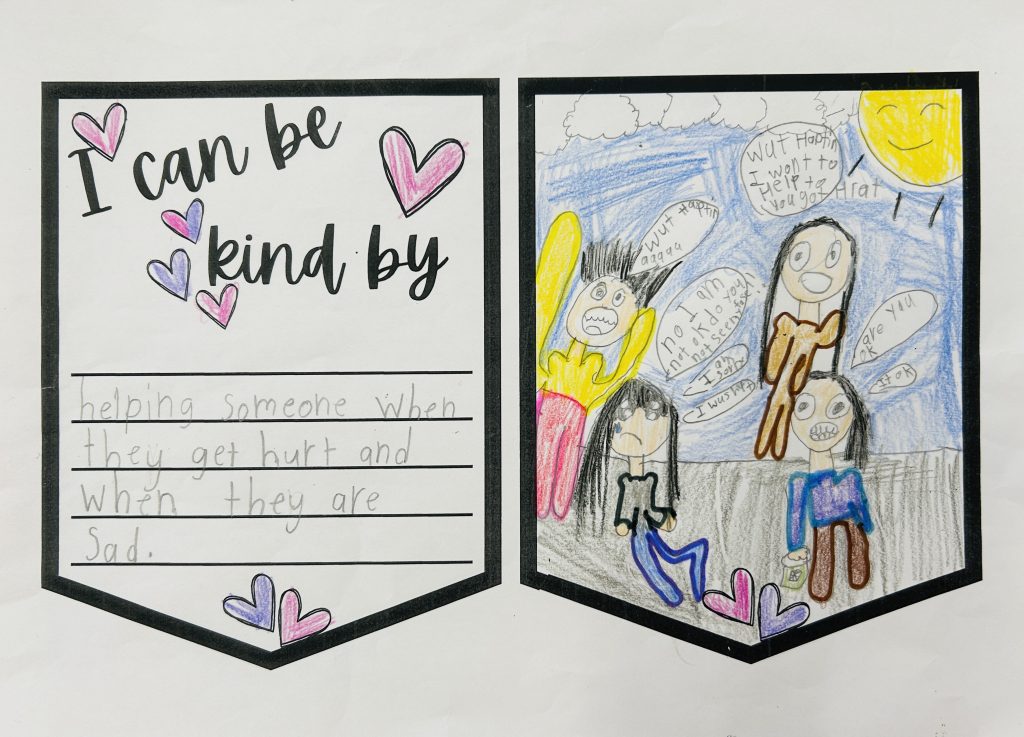 I can be
kind by
helping someone when
they get hurt and
when they are
sad.
Wut Haptin
aagaa
Wut Haptin
I wont to
Help to
you got Hrat
no I am
not ok do you
not see my
I am
sary
I wus hrt
are you
ok
it ok